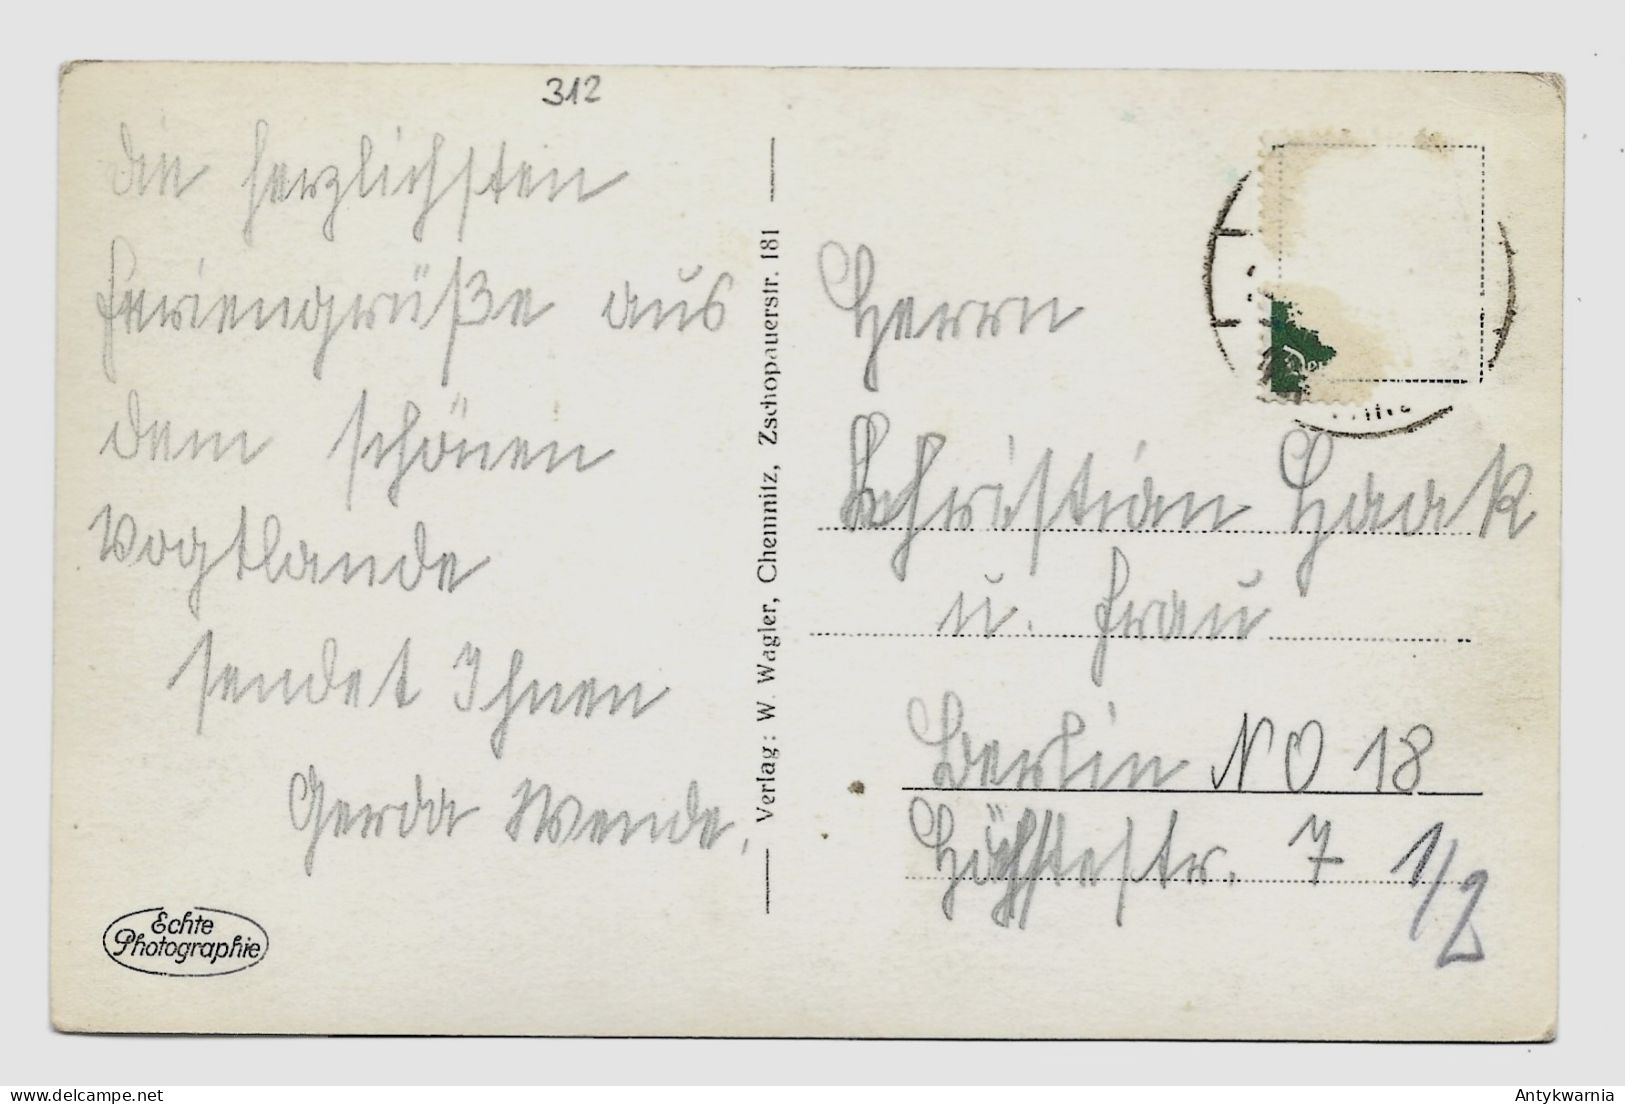 312
die herzlichsten
Feriengrüße aus
dem schönen
Vogtlande
sendet Ihnen
Gerda Wende.
Echte
Photographie
Verlag: W. Wagler, Chemnitz, Zschopauerstr. 181
Herrn
Christian Haak
u. Frau
Berlin NO 18
Höchstestr. 7
1/2
Antykwarnia